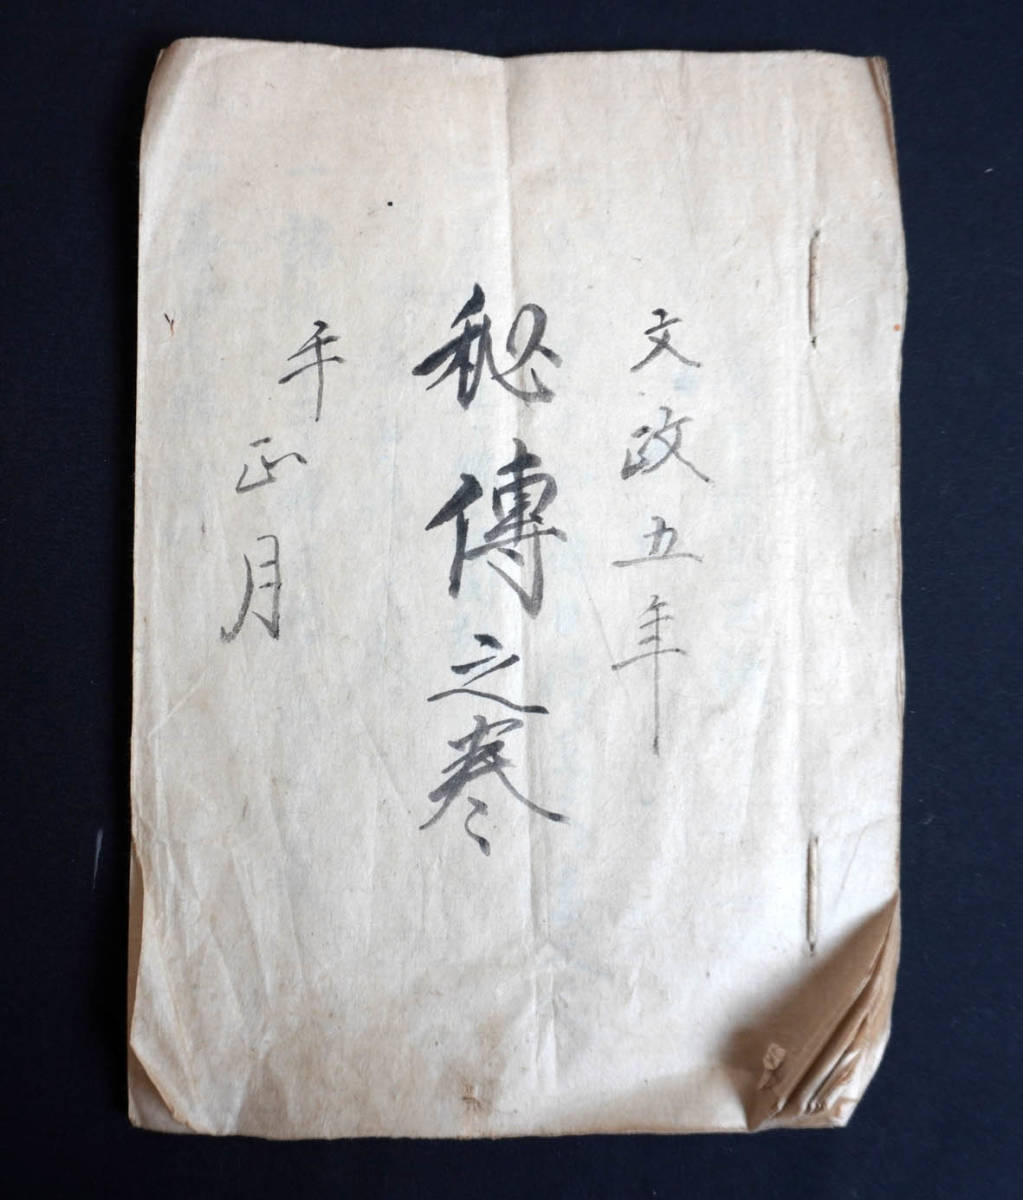 文政五年
秘傳之巻
午正月